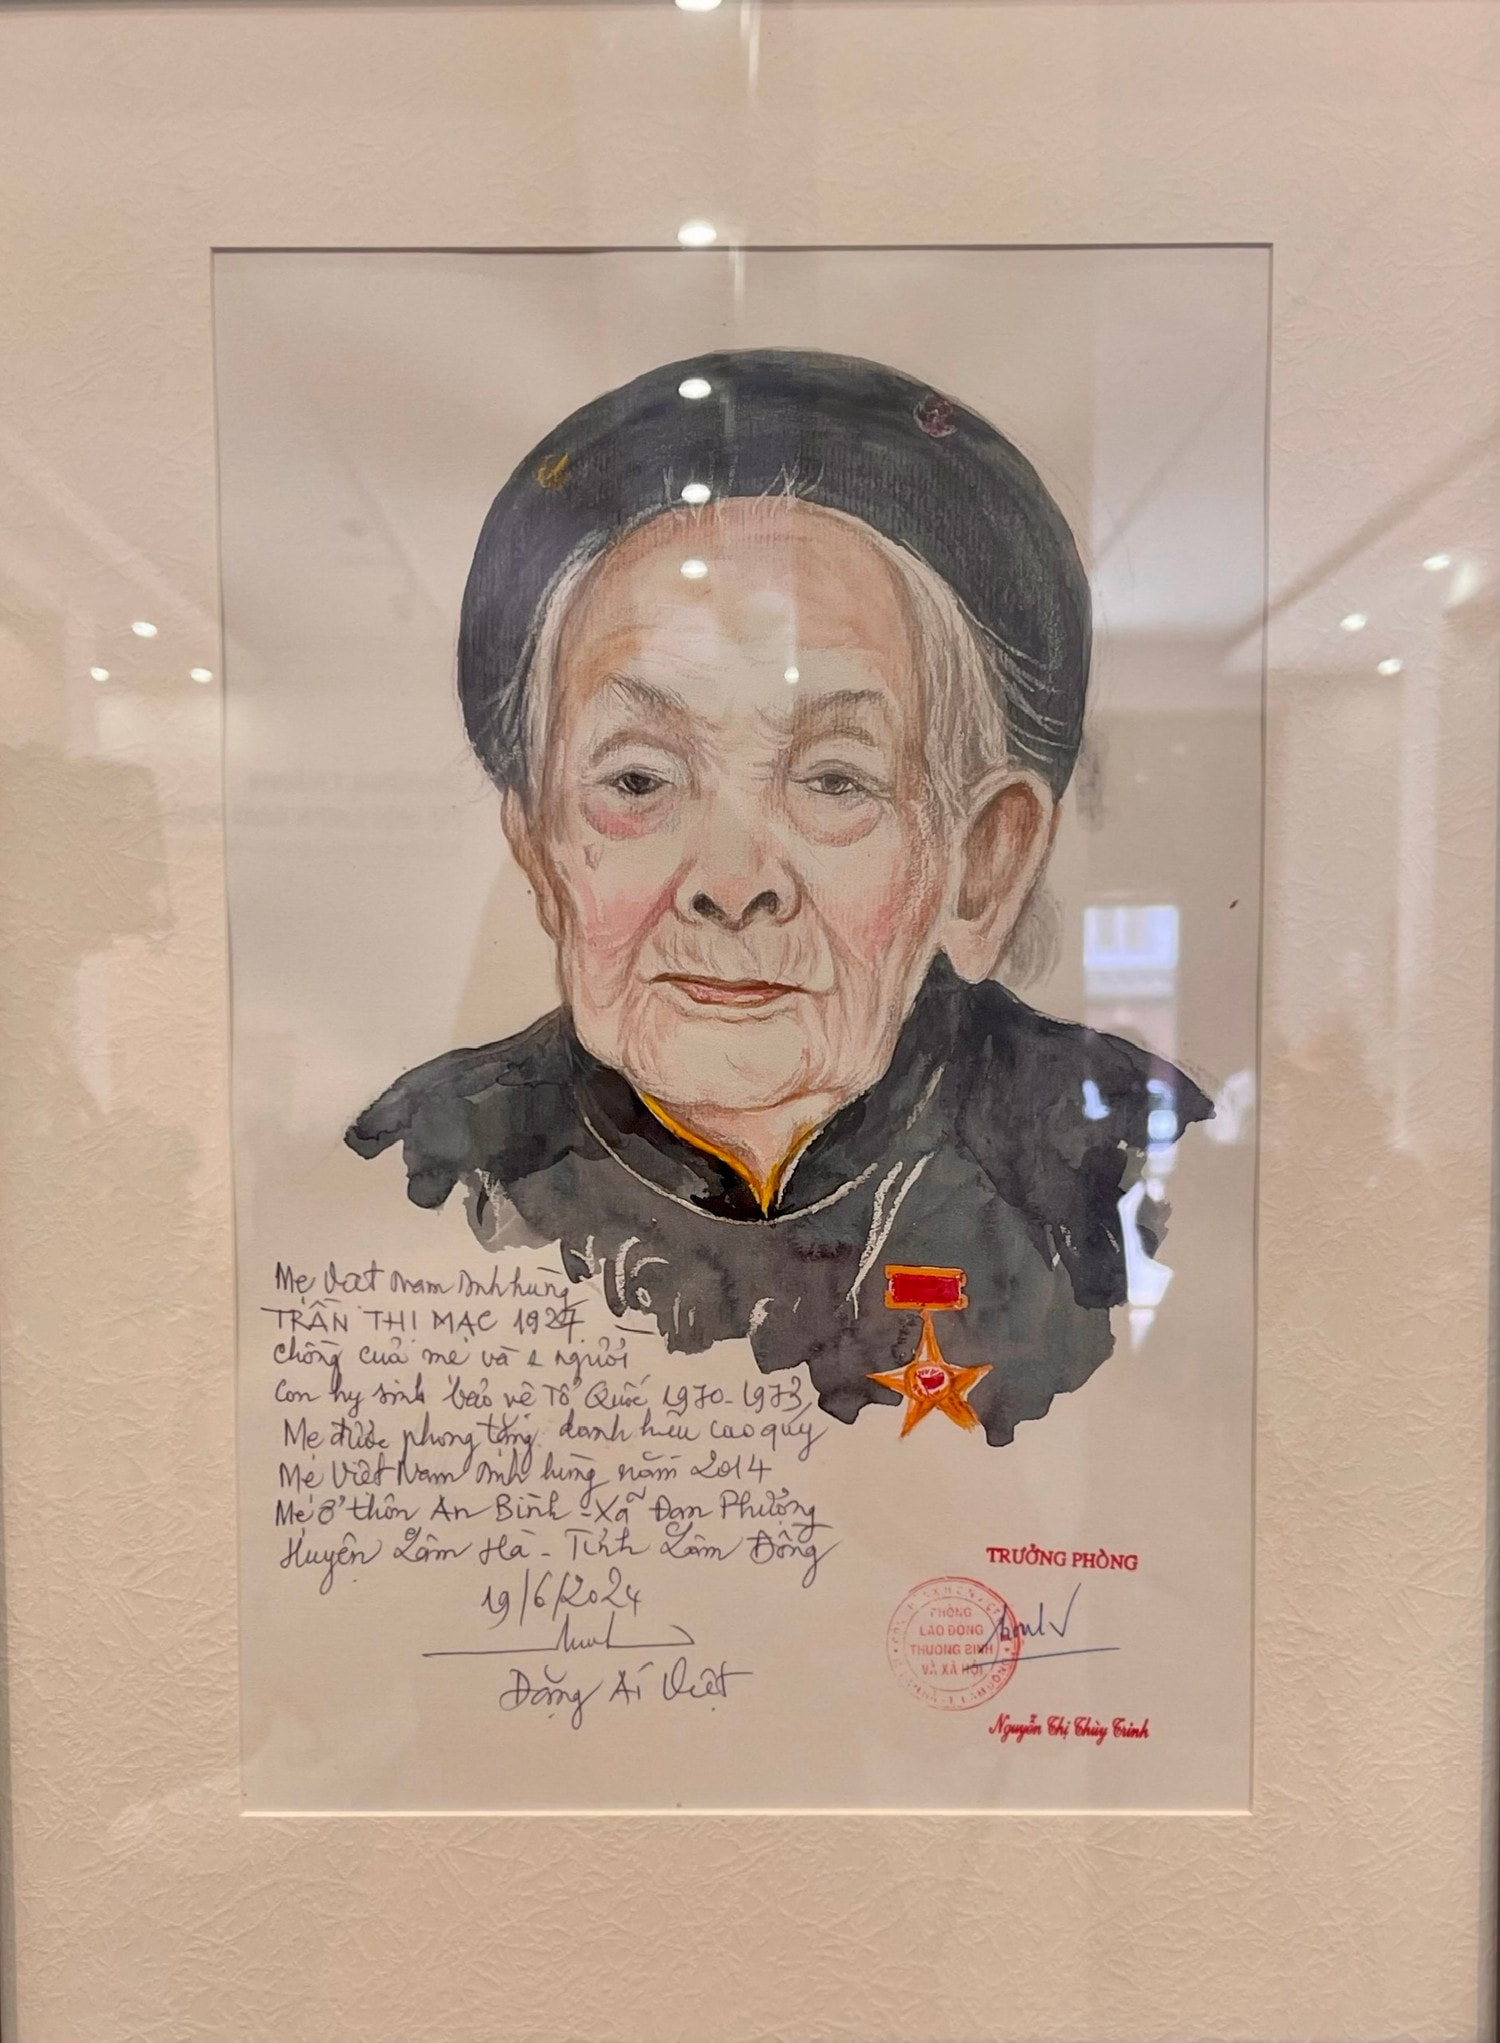 Mẹ Việt Nam Anh hùng
TRẦN THỊ MẠC 1927
chồng của mẹ và 2 người
con hy sinh bảo vệ Tổ Quốc 1970-1973
Mẹ được phong tặng danh hiệu cao quý
Mẹ Việt Nam Anh hùng năm 2014
Mẹ ở thôn An Bình - Xã Đan Phượng
Huyện Lâm Hà - Tỉnh Lâm Đồng
19/6/2024
Đặng Ái Việt
TRƯỞNG PHÒNG
PHÒNG
LAO ĐỘNG
THƯƠNG BINH
VÀ XÃ HỘI
Nguyễn Thị Thùy Trinh